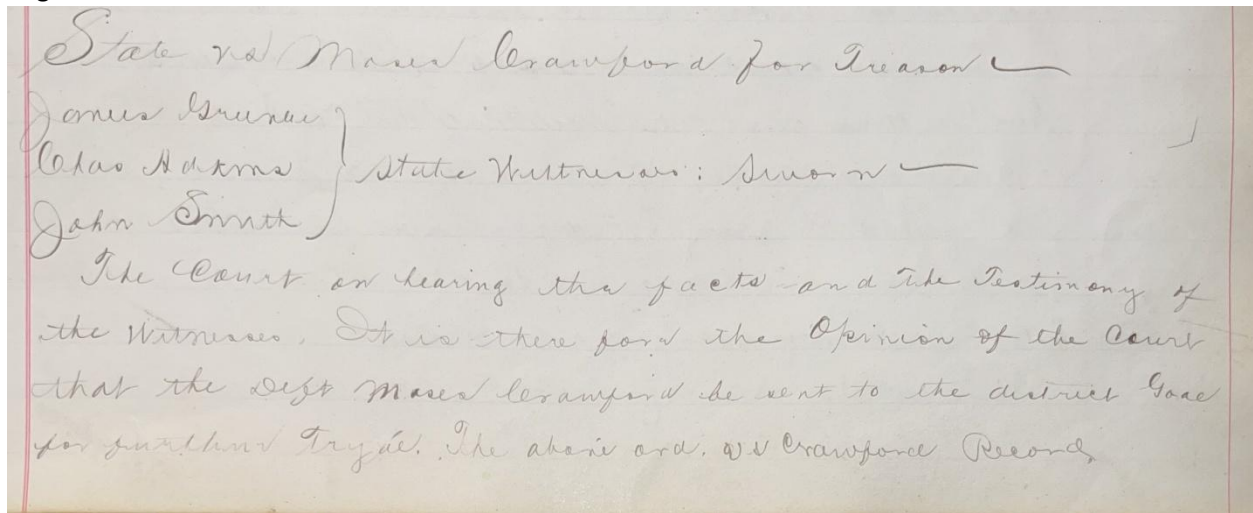 State vs Moses Crawford for Treason
James Grunae
Chas Adkms
John Smith
State Wittnesses: Sworn
The Court on hearing the facts and The Testimony of
the Witnesses. It is there fore the Opinion of the Court
that the Deft Moses Crawford be sent to the district Goae
for further Tryáe. The above ord. vs Crawford Record